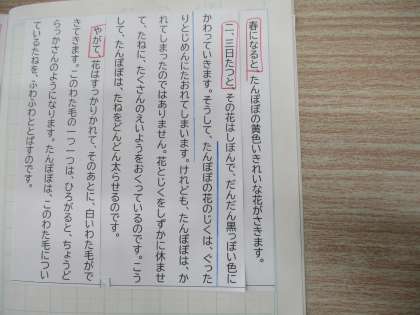 春になると、たんぽぽの黄色いきれいな花がさきます。
二、三日たつと、その花はしぼんで、だんだん黒っぽい色に
かわっていきます。そうして、たんぽぽの花のじくは、ぐった
りとじめんにたおれてしまいます。けれども、たんぽぽは、か
れてしまったのではありません。花とじくをしずかに休ませ
て、たねに、たくさんのえいようをおくっているのです。こう
して、たんぽぽは、たねをどんどん太らせるのです。
やがて、花はすっかりかれて、そのあとに、白いわた毛がで
きてきます。このわた毛の一つ一つは、ひろがると、ちょうど
らっかさんのようになります。たんぽぽは、このわた毛につい
ているたねを、ふわふわととばすのです。